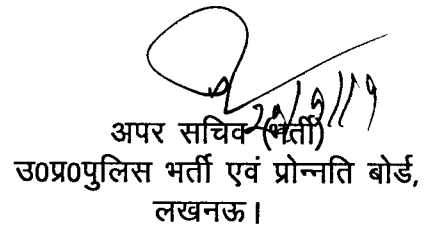 अपर सचिव (भर्ती)
उ0प्र0पुलिस भर्ती एवं प्रोन्नति बोर्ड,
लखनऊ।